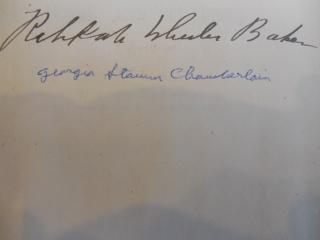 Rebekah Wheeler Baker
Georgia Stamm Chamberlain